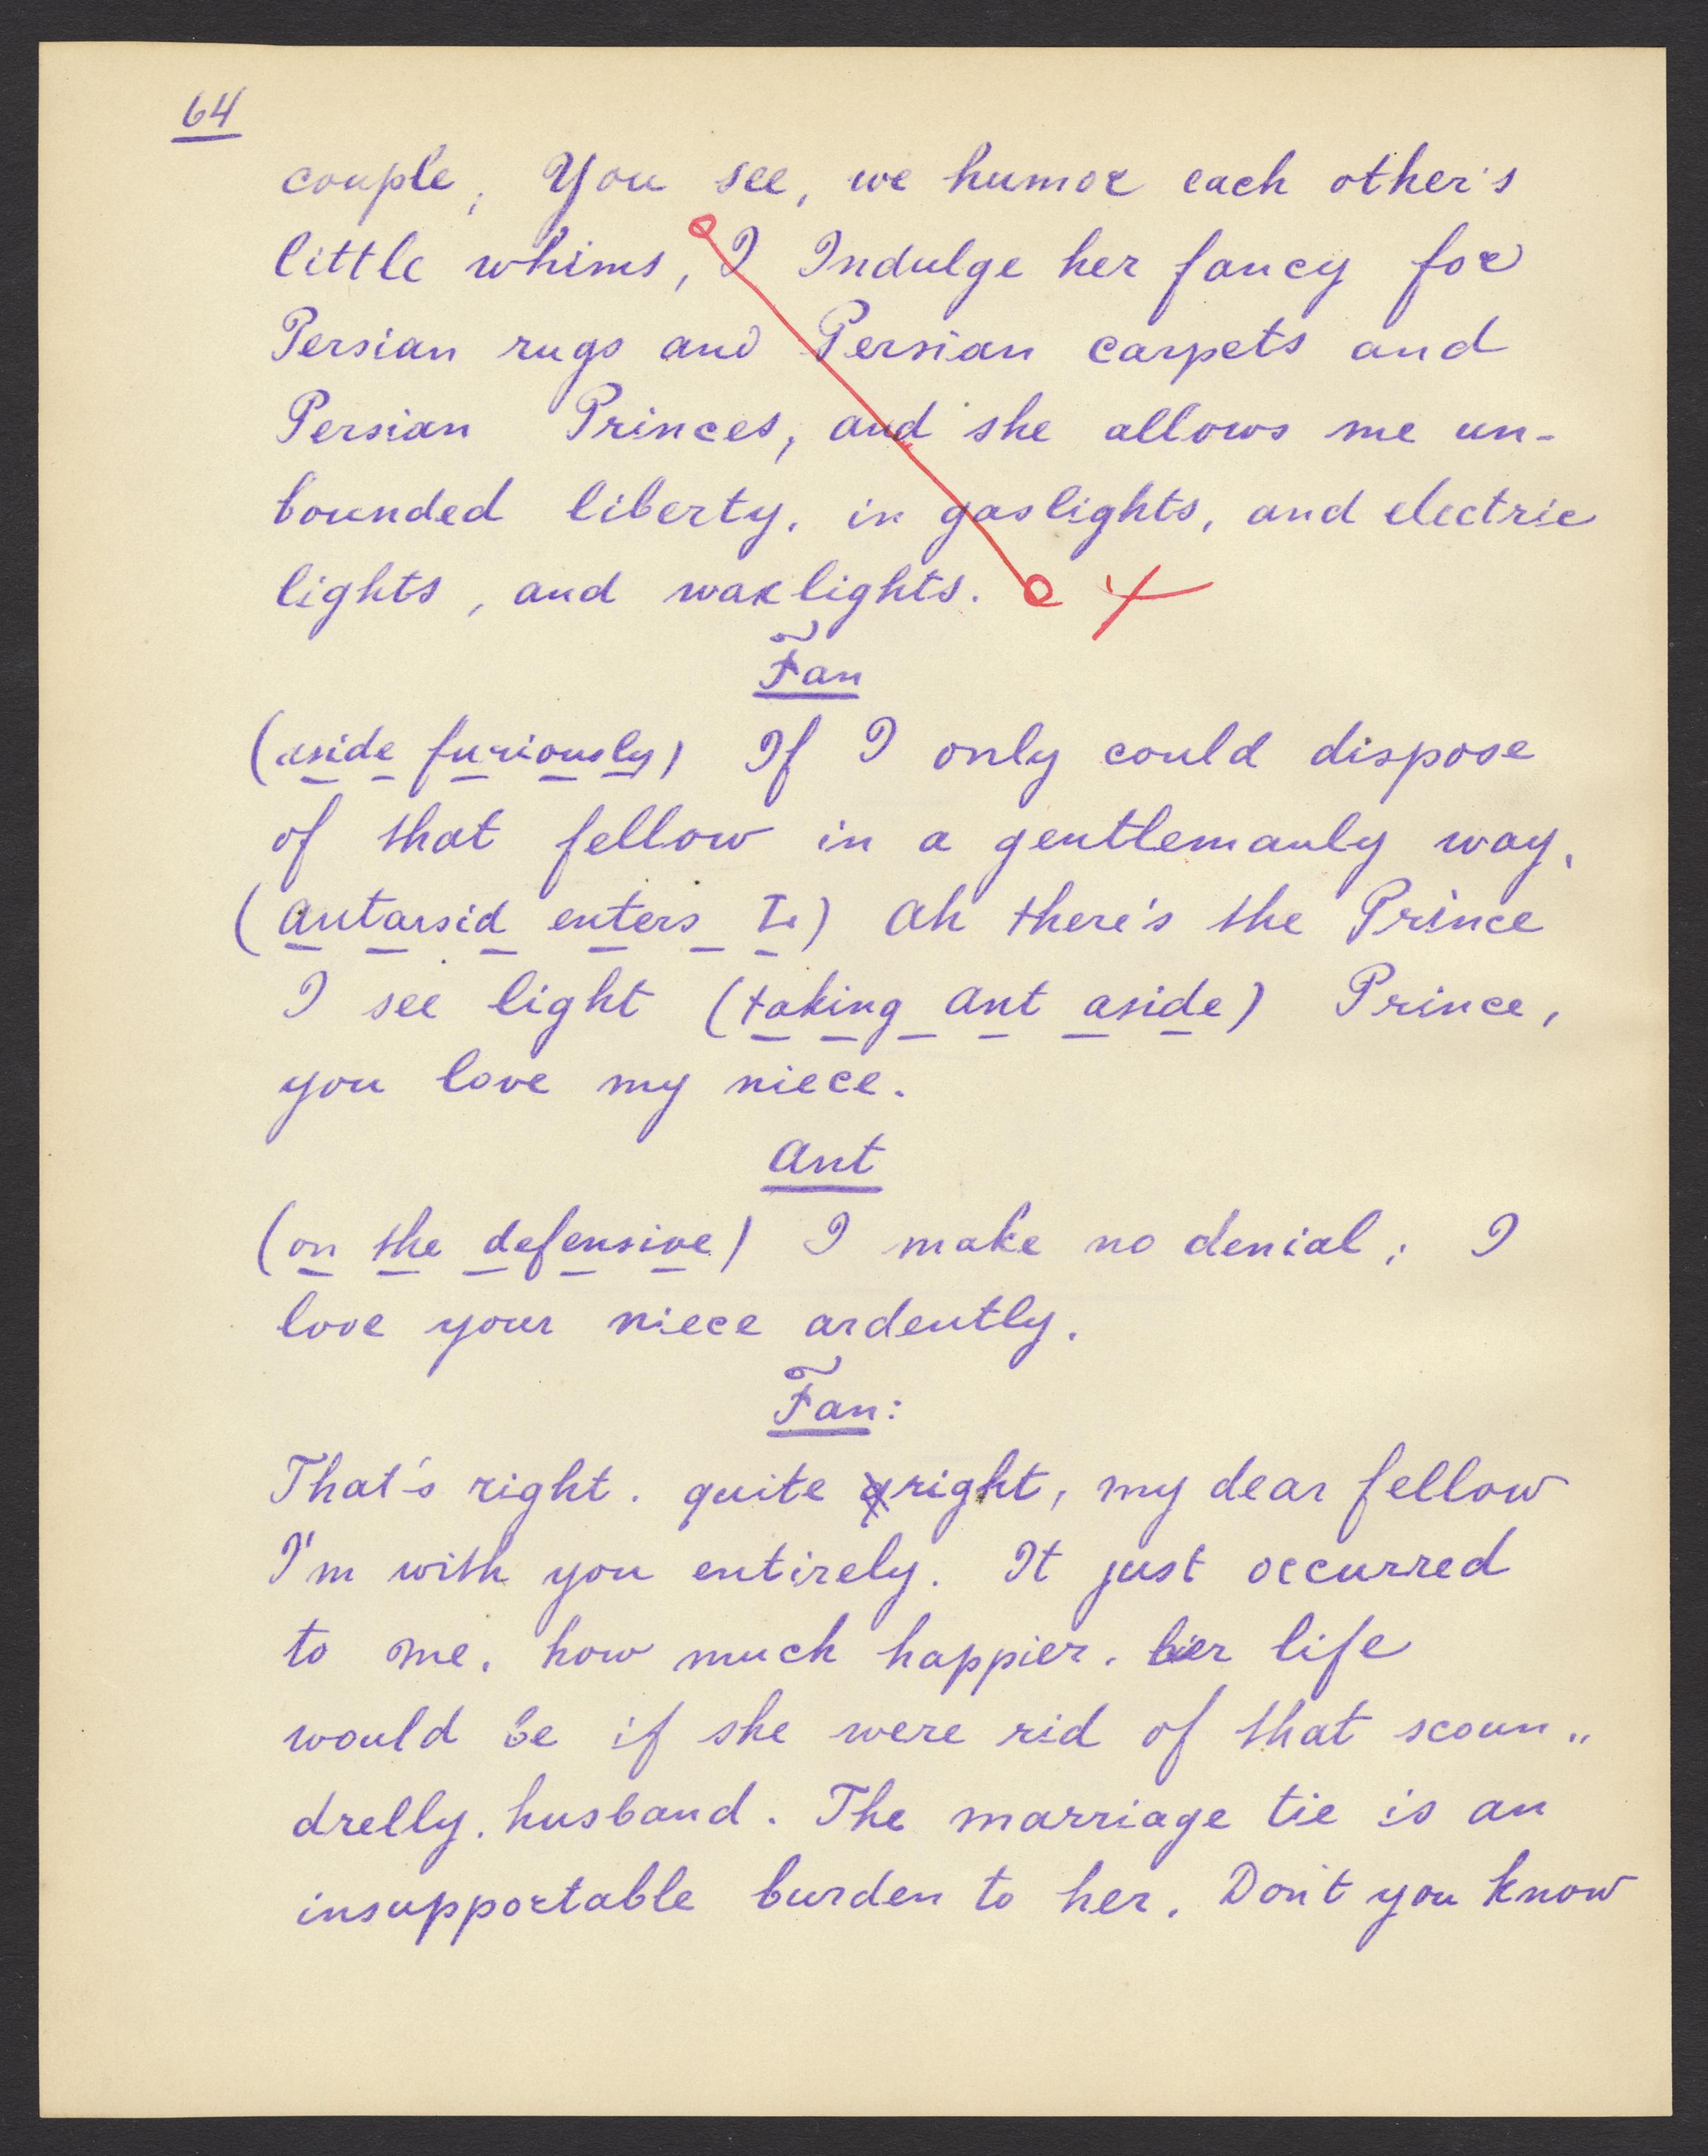 64
couple; You see, we humor each other's
little whims, I Indulge her fancy for
Persian rugs and Persian carpets and
Persian Princes, and she allows me un-
bounded liberty, in gaslights, and electric
lights, and waxlights.
Fan
(aside furiously) If I only could dispose
of that fellow in a gentlemanly way,
(Antarsid enters L.) Ah there's the Prince
I see light (taking Ant aside) Prince,
you love my niece.
Ant
(on the defensive) I make no denial; I
love your niece ardently.
Fan:
That's right. quite right, my dear fellow
I'm with you entirely. It just occurred
to me, how much happier. her life
would be if she were rid of that scoun„
drelly. husband. The marriage tie is an
insupportable burden to her. Don't you know